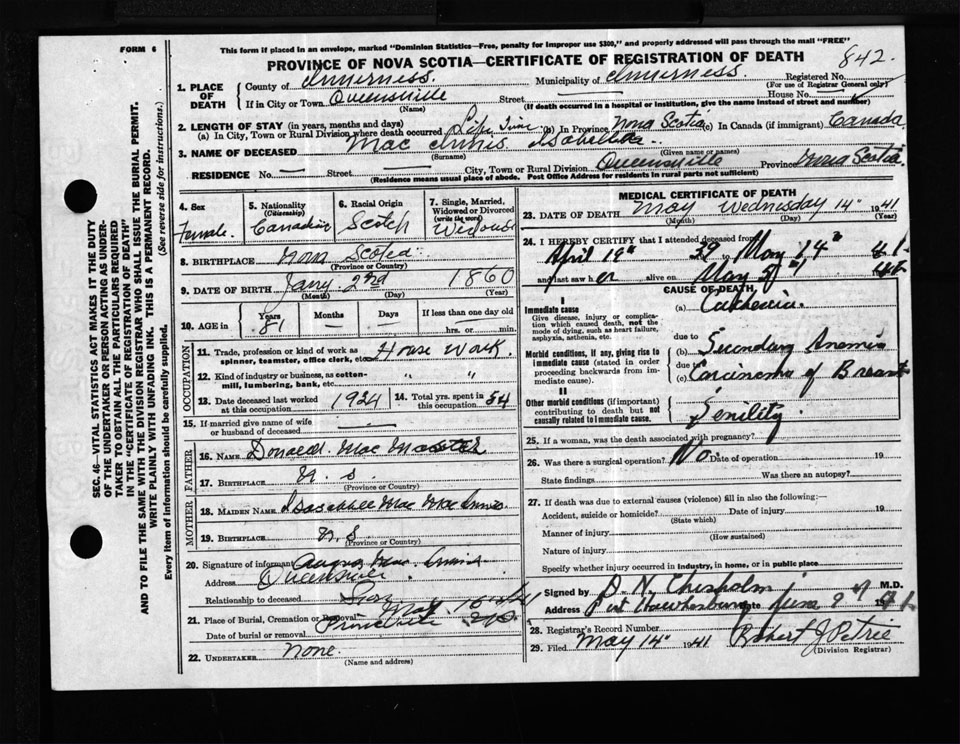 FORM 6
This form if placed in an envelope, marked "Dominion Statistics—Free, penalty for improper use $300," and properly addressed will pass through the mail "FREE"
PROVINCE OF NOVA SCOTIA—CERTIFICATE OF REGISTRATION OF DEATH
842
1. PLACE OF DEATH
County of Inverness. Municipality of Inverness. Registered No.
(For use of Registrar General only)
If in City or Town Queensville Street House No.
(Name) (If death occurred in a hospital or institution, give the name instead of street and number)
2. LENGTH OF STAY (in years, months and days)
(a) In City, Town or Rural Division where death occurred Life Time (b) In Province Nova Scotia (c) In Canada (if immigrant) Canada.
3. NAME OF DECEASED Mac Innis
(Surname) (Given name or names)
RESIDENCE No. — Street City, Town or Rural Division Queensville Province Nova Scotia.
(Residence means usual place of abode. Post Office Address for residents in rural parts not sufficient)
4. Sex
Female.
5. Nationality (Citizenship)
Canadian
6. Racial Origin
Scotch
7. Single, Married, Widowed or Divorced (write the word)
8. BIRTHPLACE Nova Scotia.
(Province or Country)
9. DATE OF BIRTH Jany. 2nd 1860
(Month) (Day) (Year)
10. AGE in
Years Months Days If less than one day old
81 — — hrs. or min.
OCCUPATION
11. Trade, profession or kind of work as spinner, teamster, office clerk, etc. House Work.
12. Kind of industry or business, as cotton-mill, lumbering, bank, etc. " "
13. Date deceased last worked at this occupation 1924
14. Total yrs. spent in this occupation 54
15. If married give name of wife or husband of deceased —
FATHER
16. NAME Donald Mac Master
17. BIRTHPLACE N. S
(Province or Country)
MOTHER
18. MAIDEN NAME
19. BIRTHPLACE N. S
(Province or Country)
20. Signature of informant Angus Mac Innis
Address Queensville.
Relationship to deceased Son
21. Place of Burial, Cremation or Removal
Date of burial or removal
22. UNDERTAKER none.
(Name and address)
MEDICAL CERTIFICATE OF DEATH
23. DATE OF DEATH May Wednesday 14th 1941
(Month) (Day) (Year)
24. I HEREBY CERTIFY that I attended deceased from
April 19th 39 to May 14th 41
and last saw h er alive on May 41
CAUSE OF DEATH
I
Immediate cause
Give disease, injury or complication which caused death, not the mode of dying, such as heart failure, asphyxia, asthenia, etc.
(a) Cachexia.
due to
Morbid conditions, if any, giving rise to immediate cause (stated in order proceeding backwards from immediate cause).
(b) Secondary Anemia
due to
(c) Carcinoma of Breast
II
Other morbid conditions (if important) contributing to death but not causally related to immediate cause.
Senility.
25. If a woman, was the death associated with pregnancy?
26. Was there a surgical operation? No. Date of operation 19
State findings Was there an autopsy?
27. If death was due to external causes (violence) fill in also the following:—
Accident, suicide or homicide? Date of injury 19
(State which)
Manner of injury
(How sustained)
Nature of injury
Specify whether injury occurred in Industry, in home, or in public place
Signed by D. N. Chisholm M.D.
Address Port Hawkesbury Date June 9th 1941
28. Registrar's Record Number
29. Filed May 14th 1941 Robert J Petrie
(Division Registrar)
SEC. 46—VITAL STATISTICS ACT MAKES IT THE DUTY
OF THE UNDERTAKER OR PERSON ACTING AS UNDER-
TAKER TO OBTAIN ALL THE PARTICULARS REQUIRED
IN THE "CERTIFICATE OF REGISTRATION OF DEATH"
AND TO FILE THE SAME WITH THE DIVISION REGISTRAR WHO SHALL ISSUE THE BURIAL PERMIT.
WRITE PLAINLY WITH UNFADING INK. THIS IS A PERMANENT RECORD.
Every item of information should be carefully supplied. (See reverse side for instructions.)